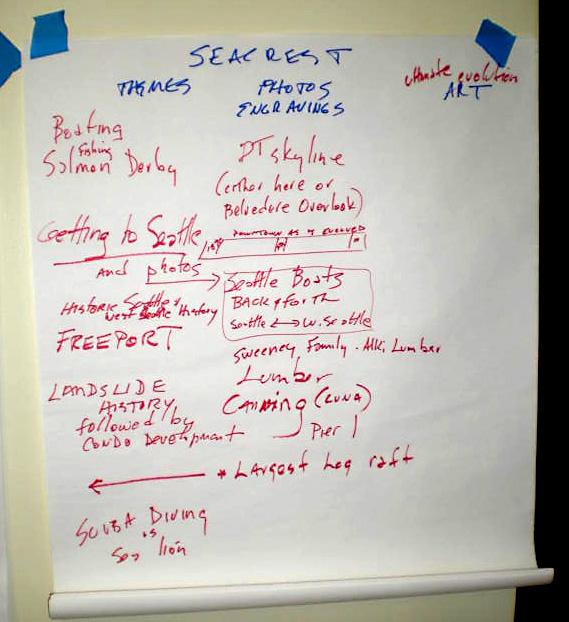 SEACREST
THEMES
PHOTOS
ENGRAVINGS
ultimate evolution
ART
Boating
Fishing
Salmon Derby
DT skyline
(either here or
Belvedere Overlook)
Getting to Seattle
DOWNTOWN AS IT EVOLVED
and photos
Seattle Boats
BACK & FORTH
Seattle <-> W. Seattle
HISTORIC Seattle &
West Seattle History
FREEPORT
Sweeney Family - Alki Lumber
Lumber
LANDSLIDE
HISTORY
followed by
CONDO Development
CANNING (LUNA)
Pier 1
* LARGEST LOG raft
SCUBA DIVING
Sea lion